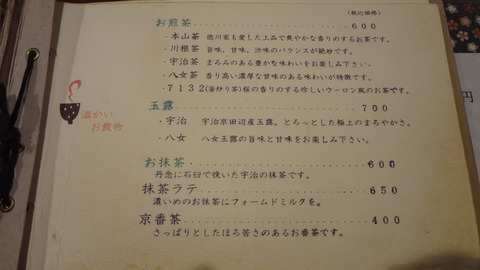 (税込価格)
お煎茶 600
・本山茶 徳川家も愛した上品で爽やかな香りのするお茶です。
・川根茶 旨味、甘味、渋味のバランスが絶妙です。
・宇治茶 まろみのある豊かな味わいをお楽しみ下さい。
・八女茶 香り高い濃厚な甘味のある味わいが特徴です。
・7132(釜炒り茶)桜の香りのする珍しいウーロン風のお茶です。
玉露 700
・宇治 宇治京田辺産玉露。とろっとした極上のまろやかさ。
・八女 八女玉露の旨味と甘味をお楽しみ下さい。
お抹茶 600
丹念に石臼で挽いた宇治の抹茶です。
抹茶ラテ 650
濃いめのお抹茶にフォームドミルクを。
京番茶 400
さっぱりとしたほろ苦さのあるお番茶です。
温かい
お飲物
円